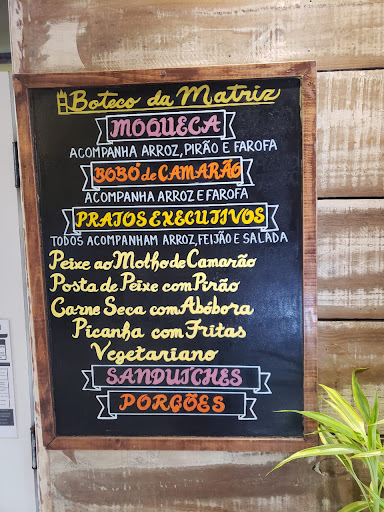 Boteco da Matriz
MOQUECA
ACOMPANHA ARROZ, PIRÃO E FAROFA
BOBÓ de CAMARÃO
ACOMPANHA ARROZ E FAROFA
PRATOS EXECUTIVOS
TODOS ACOMPANHAM ARROZ, FEIJÃO E SALADA
Peixe ao Molho de Camarão
Posta de Peixe com Pirão
Carne Seca com Abóbora
Picanha com Fritas
Vegetariano
SANDUÍCHES
PORÇÕES